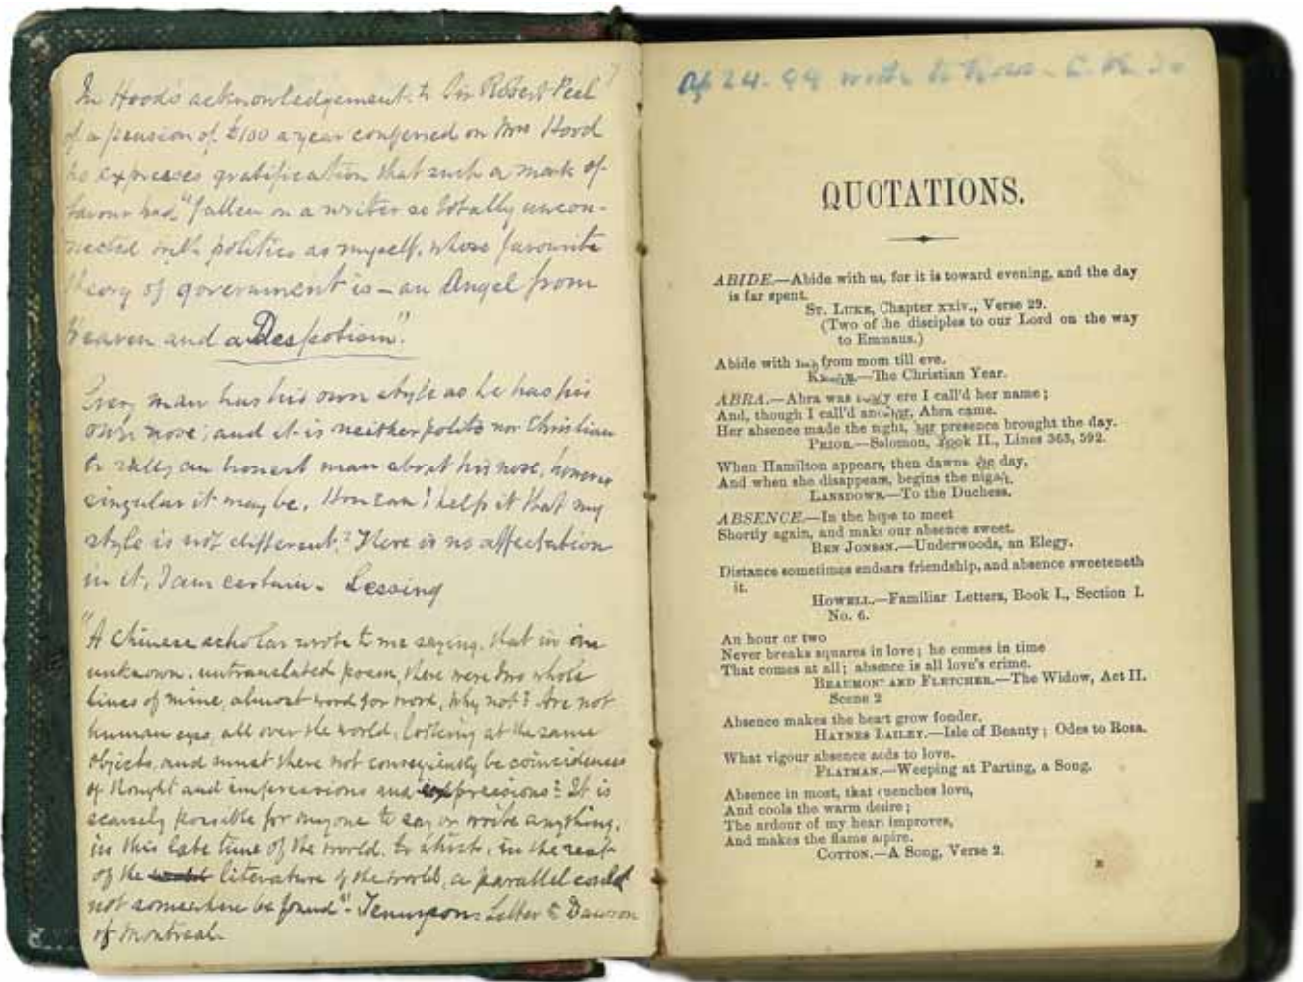 In Hood's acknowledgement to Sir Robert Peel
of a pension of £100 a year conferred on Mrs Hood
he expresses gratification that such a mark of
favour had "fallen on a writer so totally uncon-
nected with politics as myself, whose favourite
theory of government is – an Angel from
heaven and a Despotism".
Every man has his own style as he has his
own nose; and it is neither polite nor Christian
to rally an honest man about his nose, however
singular it may be. How can I help it that my
style is not different? There is no affectation
in it, I am certain. Lessing
"A Chinese scholar wrote to me saying, that in an
unknown, untranslated poem, there were two whole
lines of mine, almost word for word, Why not? Are not
human eyes, all over the world, looking at the same
objects, and must there not consequently be coincidences
of thought and impressions and expressions? It is
scarcely possible for anyone to say or write anything,
in this late time of the world, to which, in the rest
of the literature of the world, a parallel could
not somewhere be found". Tennysons Letter to Dawson
of Montreal.
24.
QUOTATIONS.
ABIDE.—Abide with us, for it is toward evening, and the day
is far spent.
ST. LUKE, Chapter xxiv., Verse 29.
(Two of the disciples to our Lord on the way
to Emmaus.)
Abide with from morn till eve.
The Christian Year.
ABRA.—Abra was ere I call'd her name;
And, though I call'd another, Abra came.
Her absence made the night, her presence brought the day.
PRIOR.—Solomon, Book II., Lines 363, 592.
When Hamilton appears, then dawns the day,
And when she disappears, begins the night.
LANSDOWN.—To the Duchess.
ABSENCE.—In the hope to meet
Shortly again, and make our absence sweet.
BEN JONSON.—Underwoods, an Elegy.
Distance sometimes endears friendship, and absence sweeteneth
it.
HOWELL.—Familiar Letters, Book I., Section I.
No. 6.
An hour or two
Never breaks squares in love; he comes in time
That comes at all; absence is all love's crime.
BEAUMONT AND FLETCHER.—The Widow, Act II.
Scene 2
Absence makes the heart grow fonder.
HAYNES BAILEY.—Isle of Beauty; Odes to Rosa.
What vigour absence adds to love.
FLATMAN.—Weeping at Parting, a Song.
Absence in most, that quenches love,
And cools the warm desire;
The ardour of my heart improves,
And makes the flame aspire.
COTTON.—A Song, Verse 2.